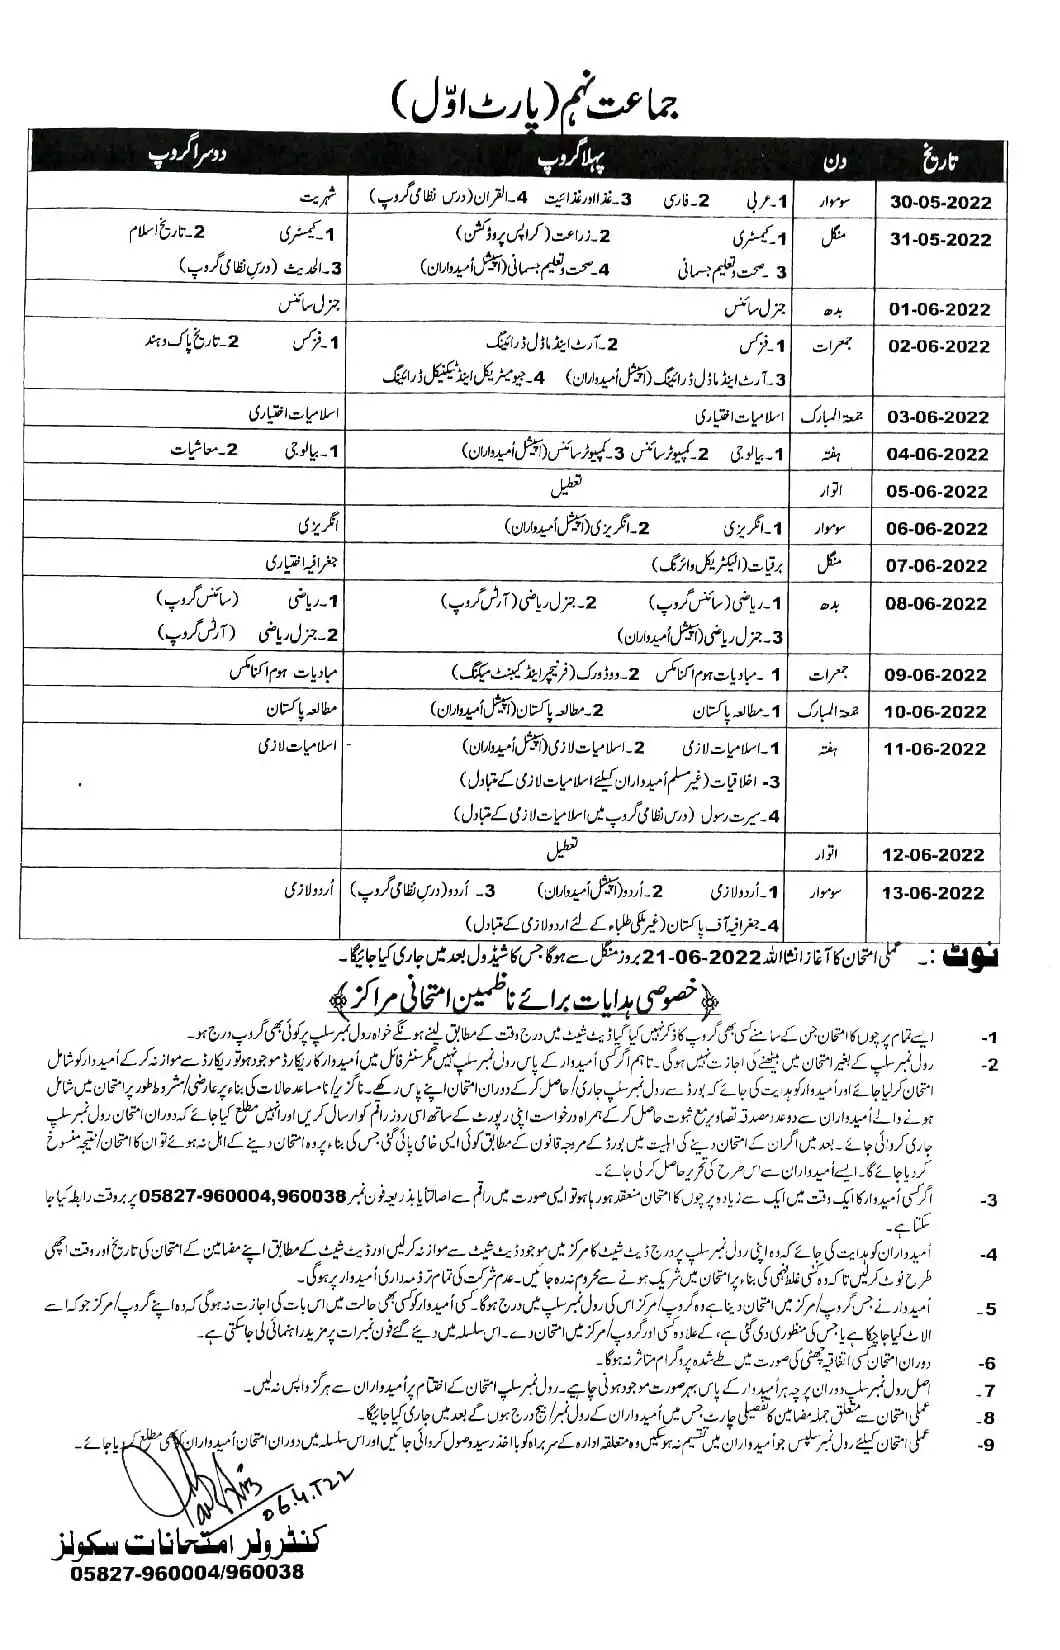 جماعت نہم (پارٹ اوّل)
تاریخ دن پہلا گروپ دوسرا گروپ
30-05-2022 سوموار 1۔عربی 2۔فارسی 3۔غذا اور غذائیت 4۔القران (درس نظامی گروپ) شہریت
31-05-2022 منگل 1۔کیمسٹری 2۔زراعت (کراپس پروڈکشن) 1۔کیمسٹری 2۔تاریخ اسلام
3۔صحت و تعلیم جسمانی 4۔صحت و تعلیم جسمانی (اسپیشل اُمیدواران) 3۔الحدیث (درسِ نظامی گروپ)
01-06-2022 بدھ جنرل سائنس جنرل سائنس
02-06-2022 جمعرات 1۔فزکس 2۔آرٹ اینڈ ماڈل ڈرائینگ 1۔فزکس 2۔تاریخ پاک و ہند
3۔آرٹ اینڈ ماڈل ڈرائینگ (اسپیشل اُمیدواران) 4۔جیومیٹریکل اینڈ ٹیکنیکل ڈرائینگ
03-06-2022 جمعۃ المبارک اسلامیات اختیاری اسلامیات اختیاری
04-06-2022 ہفتہ 1۔بیالوجی 2۔کمپیوٹر سائنس 3۔کمپیوٹر سائنس (اسپیشل اُمیدواران) 1۔بیالوجی 2۔معاشیات
05-06-2022 اتوار تعطیل
06-06-2022 سوموار 1۔انگریزی 2۔انگریزی (اسپیشل اُمیدواران) انگریزی
07-06-2022 منگل برقیات (الیکٹریکل وائرنگ) جغرافیہ اختیاری
08-06-2022 بدھ 1۔ریاضی (سائنس گروپ) 2۔جنرل ریاضی (آرٹس گروپ) 1۔ریاضی (سائنس گروپ)
3۔جنرل ریاضی (اسپیشل اُمیدواران) 2۔جنرل ریاضی (آرٹس گروپ)
09-06-2022 جمعرات 1۔مبادیات ہوم اکنامکس 2۔ووڈ ورک (فرنیچر اینڈ کیبنٹ میکنگ) مبادیات ہوم اکنامکس
10-06-2022 جمعۃ المبارک 1۔مطالعہ پاکستان 2۔مطالعہ پاکستان (اسپیشل اُمیدواران) مطالعہ پاکستان
11-06-2022 ہفتہ 1۔اسلامیات لازمی 2۔اسلامیات لازمی (اسپیشل اُمیدواران) اسلامیات لازمی
3-اخلاقیات (غیر مسلم اُمیدواران کیلئے اسلامیات لازمی کے متبادل)
4۔سیرت رسول (درس نظامی گروپ میں اسلامیات لازمی کے متبادل)
12-06-2022 اتوار تعطیل
13-06-2022 سوموار 1۔اُردو لازمی 2۔اُردو (اسپیشل اُمیدواران) 3۔اُردو (درسِ نظامی گروپ) اُردو لازمی
4۔جغرافیہ آف پاکستان (غیر ملکی طلباء کے لئے اردو لازمی کے متبادل)
نوٹ:۔ عملی امتحان کا آغاز انشااللہ 21-06-2022 بروز منگل سے ہوگا جس کا شیڈول بعد میں جاری کیا جائیگا۔
خصوصی ہدایات برائے ناظمین امتحانی مراکز
1- ایسے تمام پرچوں کا امتحان جن کے سامنے کسی بھی گروپ کا ذکر نہیں کیا گیا ڈیٹ شیٹ میں درج وقت کے مطابق لینے ہونگے خواہ رول نمبر سلپ پر کوئی بھی گروپ درج ہو۔
2- رول نمبر سلپ کے بغیر امتحان میں بیٹھنے کی اجازت نہیں ہوگی۔ تاہم اگر کسی اُمیدوار کے پاس رول نمبر سلپ نہیں مگر سنٹر فائل میں اُمیدوار کا ریکارڈ موجود ہو تو ریکارڈ سے موازنہ کر کے اُمیدوار کو شامل
امتحان کر لیا جائے اور اُمیدوار کو ہدایت کی جائے کہ بورڈ سے رول نمبر سلپ جاری/حاصل کر کے دوران امتحان اپنے پاس رکھے۔ ناگزیر/نامساعد حالات کی بناء پر عارضی/مشروط طور پر امتحان میں شامل
ہونے والے اُمیدواران سے دو عدد مصدقہ تصاویر مع ثبوت حاصل کر کے ہمراہ درخواست اپنی رپورٹ کے ساتھ اسی روز راقم کو ارسال کریں اور انہیں مطلع کیا جائے کہ دوران امتحان رول نمبر سلپ
جاری کروائی جائے۔ بعد میں اگر ان کے امتحان دینے کی اہلیت میں بورڈ کے مروجہ قانون کے مطابق کوئی ایسی خامی پائی گئی جس کی بناء پر وہ امتحان دینے کے اہل نہ ہوئے تو ان کا امتحان/نتیجہ منسوخ
کر دیا جائے گا۔ ایسے اُمیدواران سے اس طرح کی تحریر حاصل کر لی جائے۔
3- اگر کسی اُمیدوار کا ایک وقت میں ایک سے زیادہ پرچوں کا امتحان منعقد ہو رہا ہو تو ایسی صورت میں راقم سے اصالتاً یا بذریعہ فون نمبر 05827-960004,960038 پر بروقت رابطہ کیا جا
سکتا ہے۔
4- اُمیدواران کو ہدایت کی جائے کہ وہ اپنی رول نمبر سلپ پر درج ڈیٹ شیٹ کا مرکز میں موجود ڈیٹ شیٹ سے موازنہ کر لیں اور ڈیٹ شیٹ کے مطابق اپنے مضامین کے امتحان کی تاریخ اور وقت اچھی
طرح نوٹ کر لیں تا کہ وہ کسی غلط فہمی کی بناء پر امتحان میں شریک ہونے سے محروم نہ رہ جائیں۔ عدم شرکت کی تمام تر ذمہ داری اُمیدوار پر ہوگی۔
5۔ اُمیدوار نے جس گروپ/مرکز میں امتحان دینا ہے وہ گروپ/مرکز اس کی رول نمبر سلپ میں درج ہوگا۔ کسی اُمیدوار کو کسی بھی حالت میں اس بات کی اجازت نہ ہوگی کہ وہ اپنے گروپ/مرکز جو کہ اسے
الاٹ کیا جا چکا ہے یا جس کی منظوری دی گئی ہے، کے علاوہ کسی اور گروپ/مرکز میں امتحان دے۔ اس سلسلہ میں دیئے گئے فون نمبرات پر مزید راہنمائی لی جا سکتی ہے۔
6- دوران امتحان کسی اتفاقیہ چھٹی کی صورت میں طے شدہ پروگرام متاثر نہ ہوگا۔
7۔ اصل رول نمبر سلپ دوران پرچہ ہر اُمیدوار کے پاس بہر صورت موجود ہونی چاہیے۔ رول نمبر سلپ امتحان کے اختتام پر اُمیدواران سے ہرگز واپس نہ لیں۔
8۔ عملی امتحان سے متعلق جملہ مضامین کا تفصیلی چارٹ جس میں اُمیدواران کے رول نمبر/بیچ درج ہوں گے بعد میں جاری کیا جائیگا۔
9- عملی امتحان کیلئے رول نمبر سلپس جو اُمیدواران میں تقسیم نہ ہو سکیں وہ متعلقہ ادارہ کے سربراہ کو با اخذ رسید وصول کروائی جائیں اور اس سلسلہ میں دوران امتحان اُمیدواران کو بھی مطلع کر دیا جائے۔
06.4.T22
کنٹرولر امتحانات سکولز
05827-960004/960038